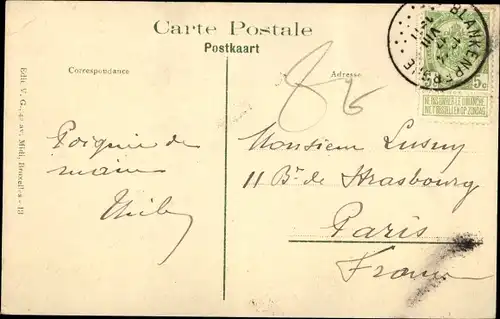 Carte Postale
Postkaart
Correspondance
Adresse
BLANKENBERGHE
5c
NE PAS LIVRER LE DIMANCHE
NIET BESTELLEN OP ZONDAG
Edit. V. G., 42 av. Midi, Bruxelles - 13
Poignée de
main
Monsieur
11 Bd de Strasbourg
Paris
France